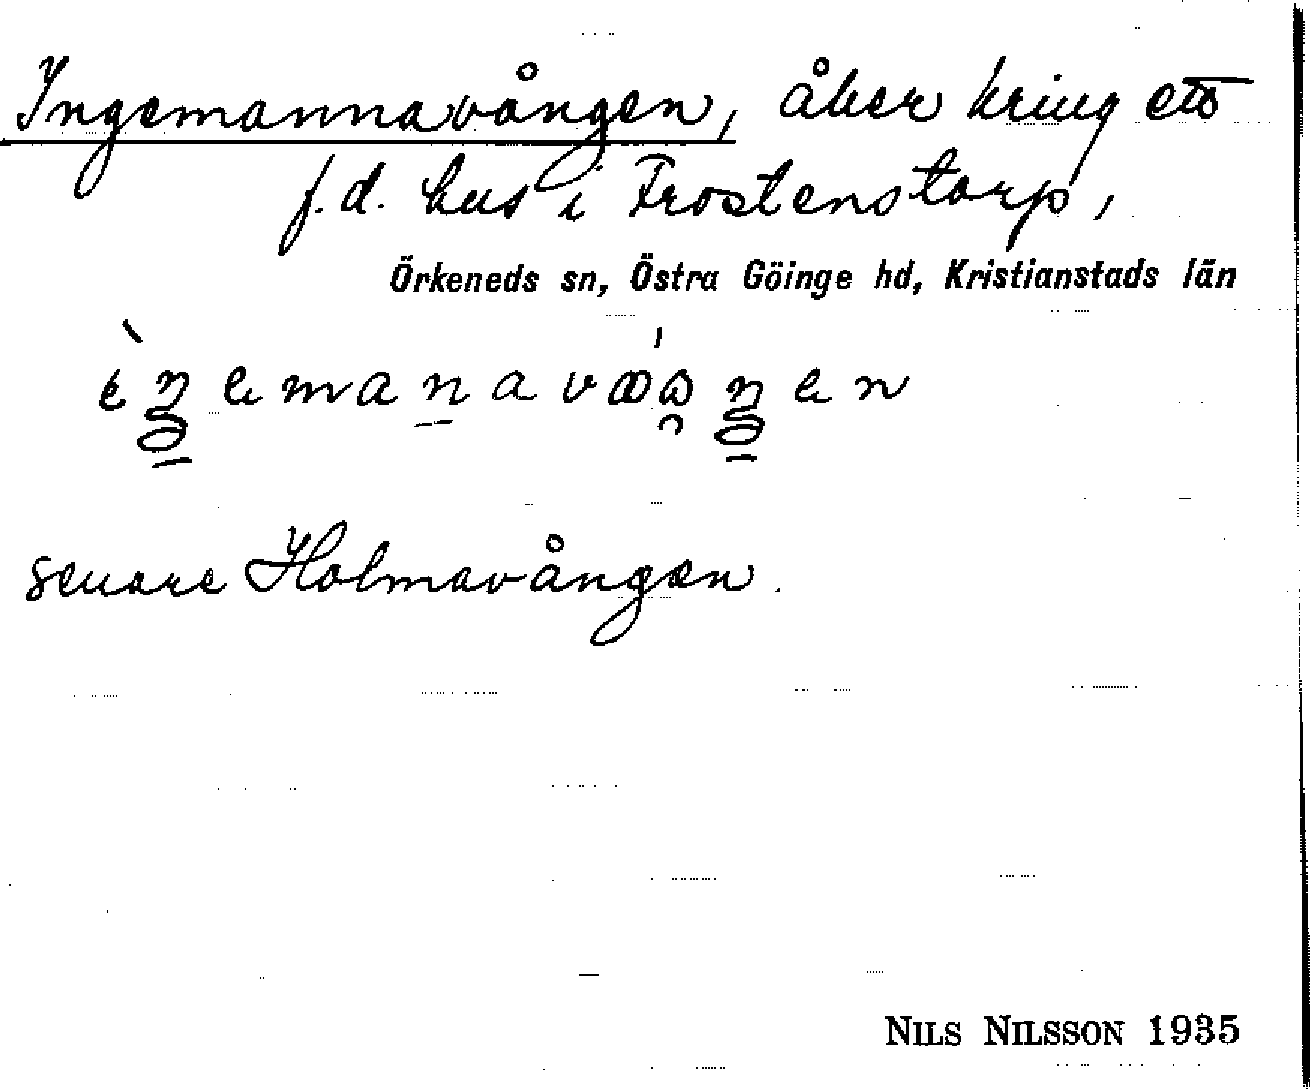 Ingemannavången, åker kring ett
f.d. hus i Frostenstorp,
Örkeneds sn, Östra Göinge hd, Kristianstads län
senare Holmavången.
NILS NILSSON 1935